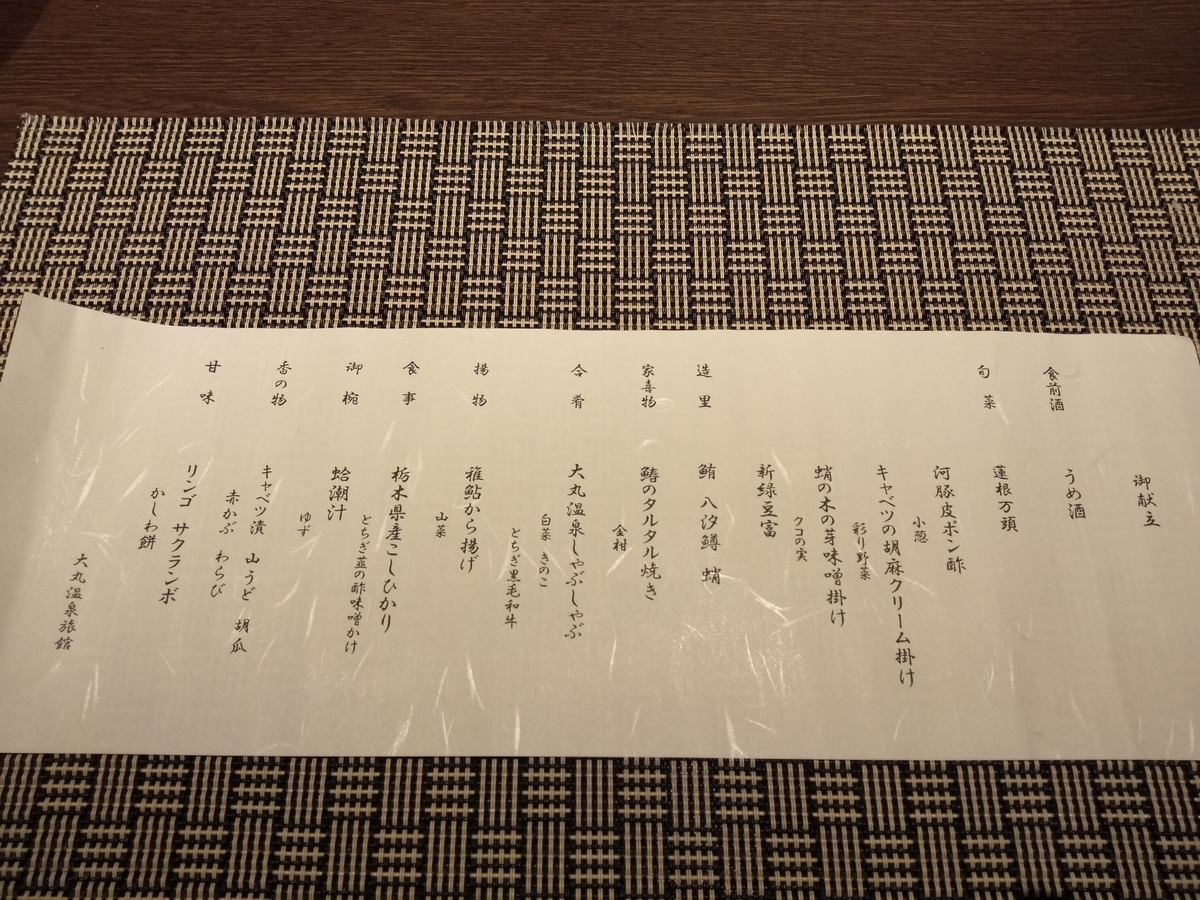 御献立
食前酒 うめ酒
旬菜 蓮根万頭
河豚皮ポン酢
小葱
キャベツの胡麻クリーム掛け
彩り野菜
蛸の木の芽味噌掛け
クコの実
新緑豆富
造里 鮪 八汐鱒 蛸
家喜物 鰆のタルタル焼き
金柑
合肴 大丸温泉しゃぶしゃぶ
白菜 きのこ
とちぎ黒毛和牛
揚物 稚鮎から揚げ
山菜
食事 栃木県産こしひかり
とちぎ韮の酢味噌かけ
御椀 蛤潮汁
ゆず
香の物 キャベツ漬 山うど 胡瓜
赤かぶ わらび
甘味 リンゴ サクランボ
かしわ餅
大丸温泉旅館